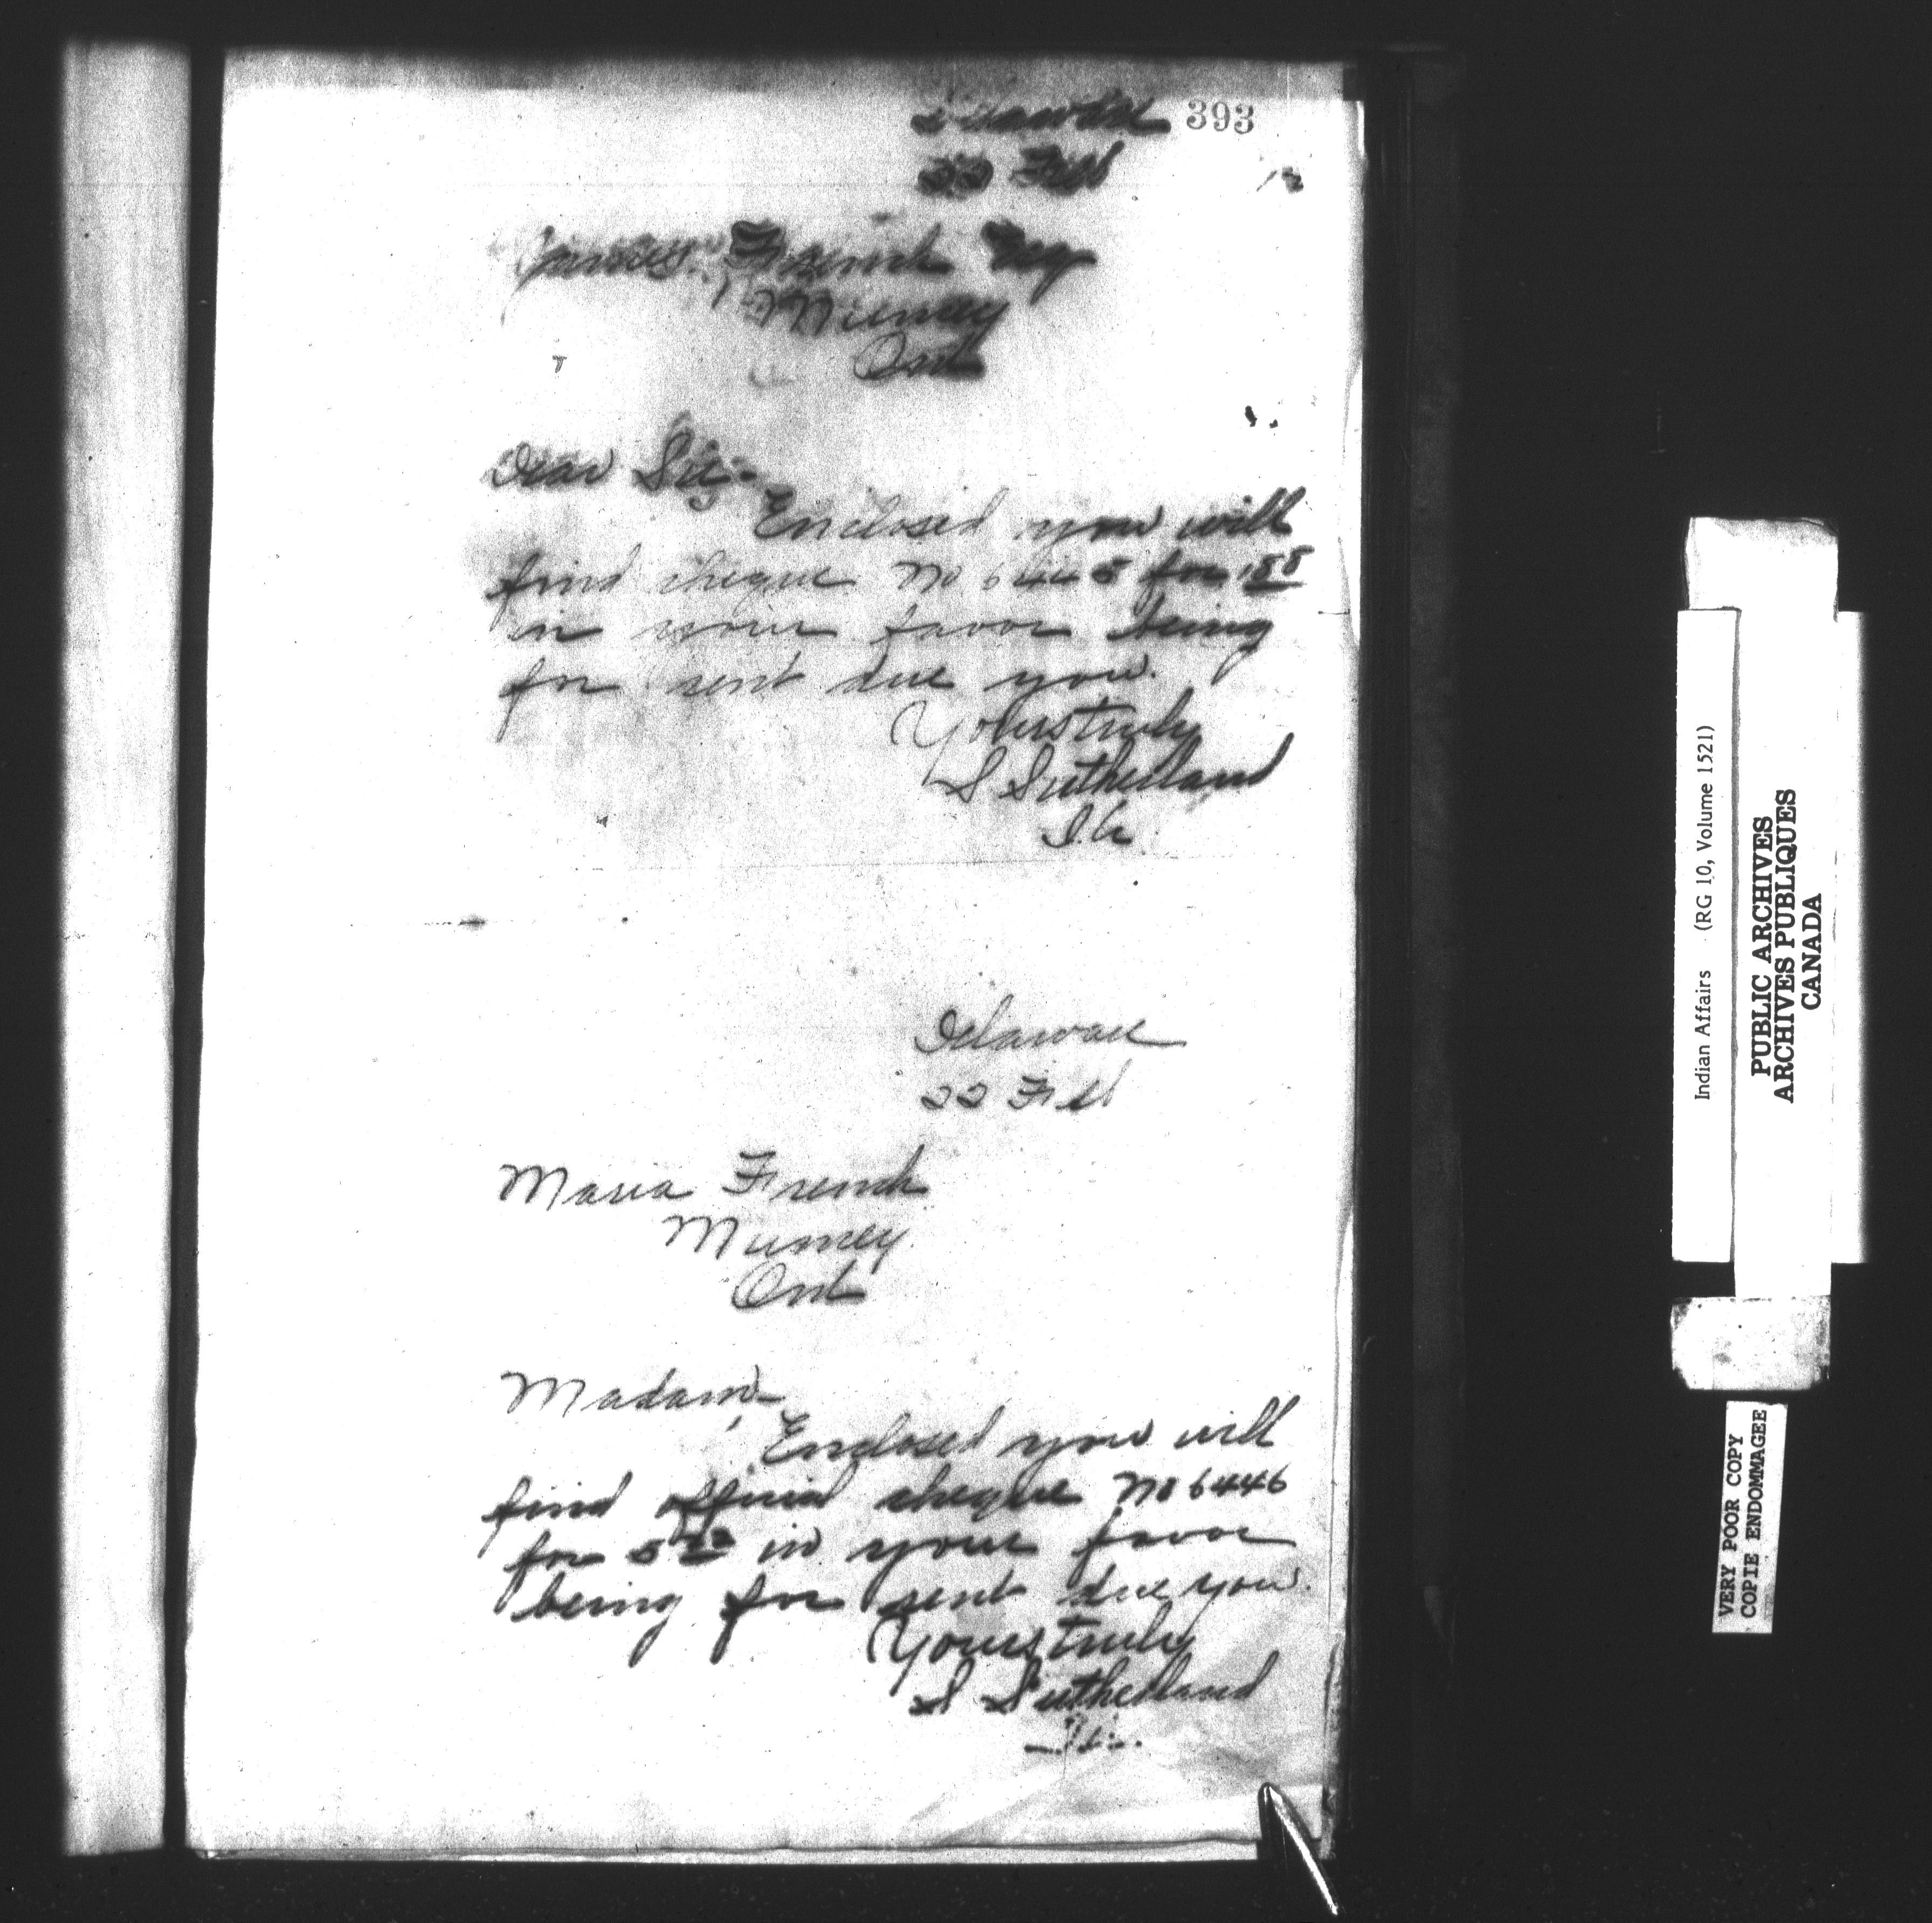 Delaware 393
22 Feb
James French Esq
Muncey
Ont
Dear Sir:-
Enclosed you will
find cheque No 6445 for
in your favor being
for rent due you.
Yours truly
S Sutherland
I.A.
Delaware
22 Feb
Maria French
Muncey
Ont
Madam,-
Enclosed you will
find official cheque No 6446
for in your favor
being for rent due you.
Yours truly
S Sutherland
Indian Affairs (RG 10, Volume 1521)
PUBLIC ARCHIVES
ARCHIVES PUBLIQUES
CANADA
VERY POOR COPY
COPIE ENDOMMAGEE